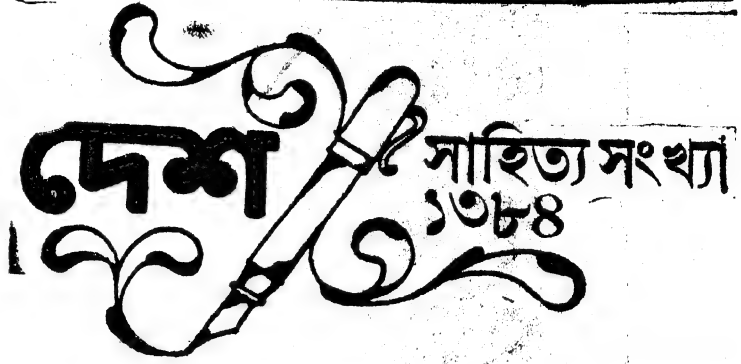 দেশ
সাহিত্য সংখ্যা
১৩৮৪